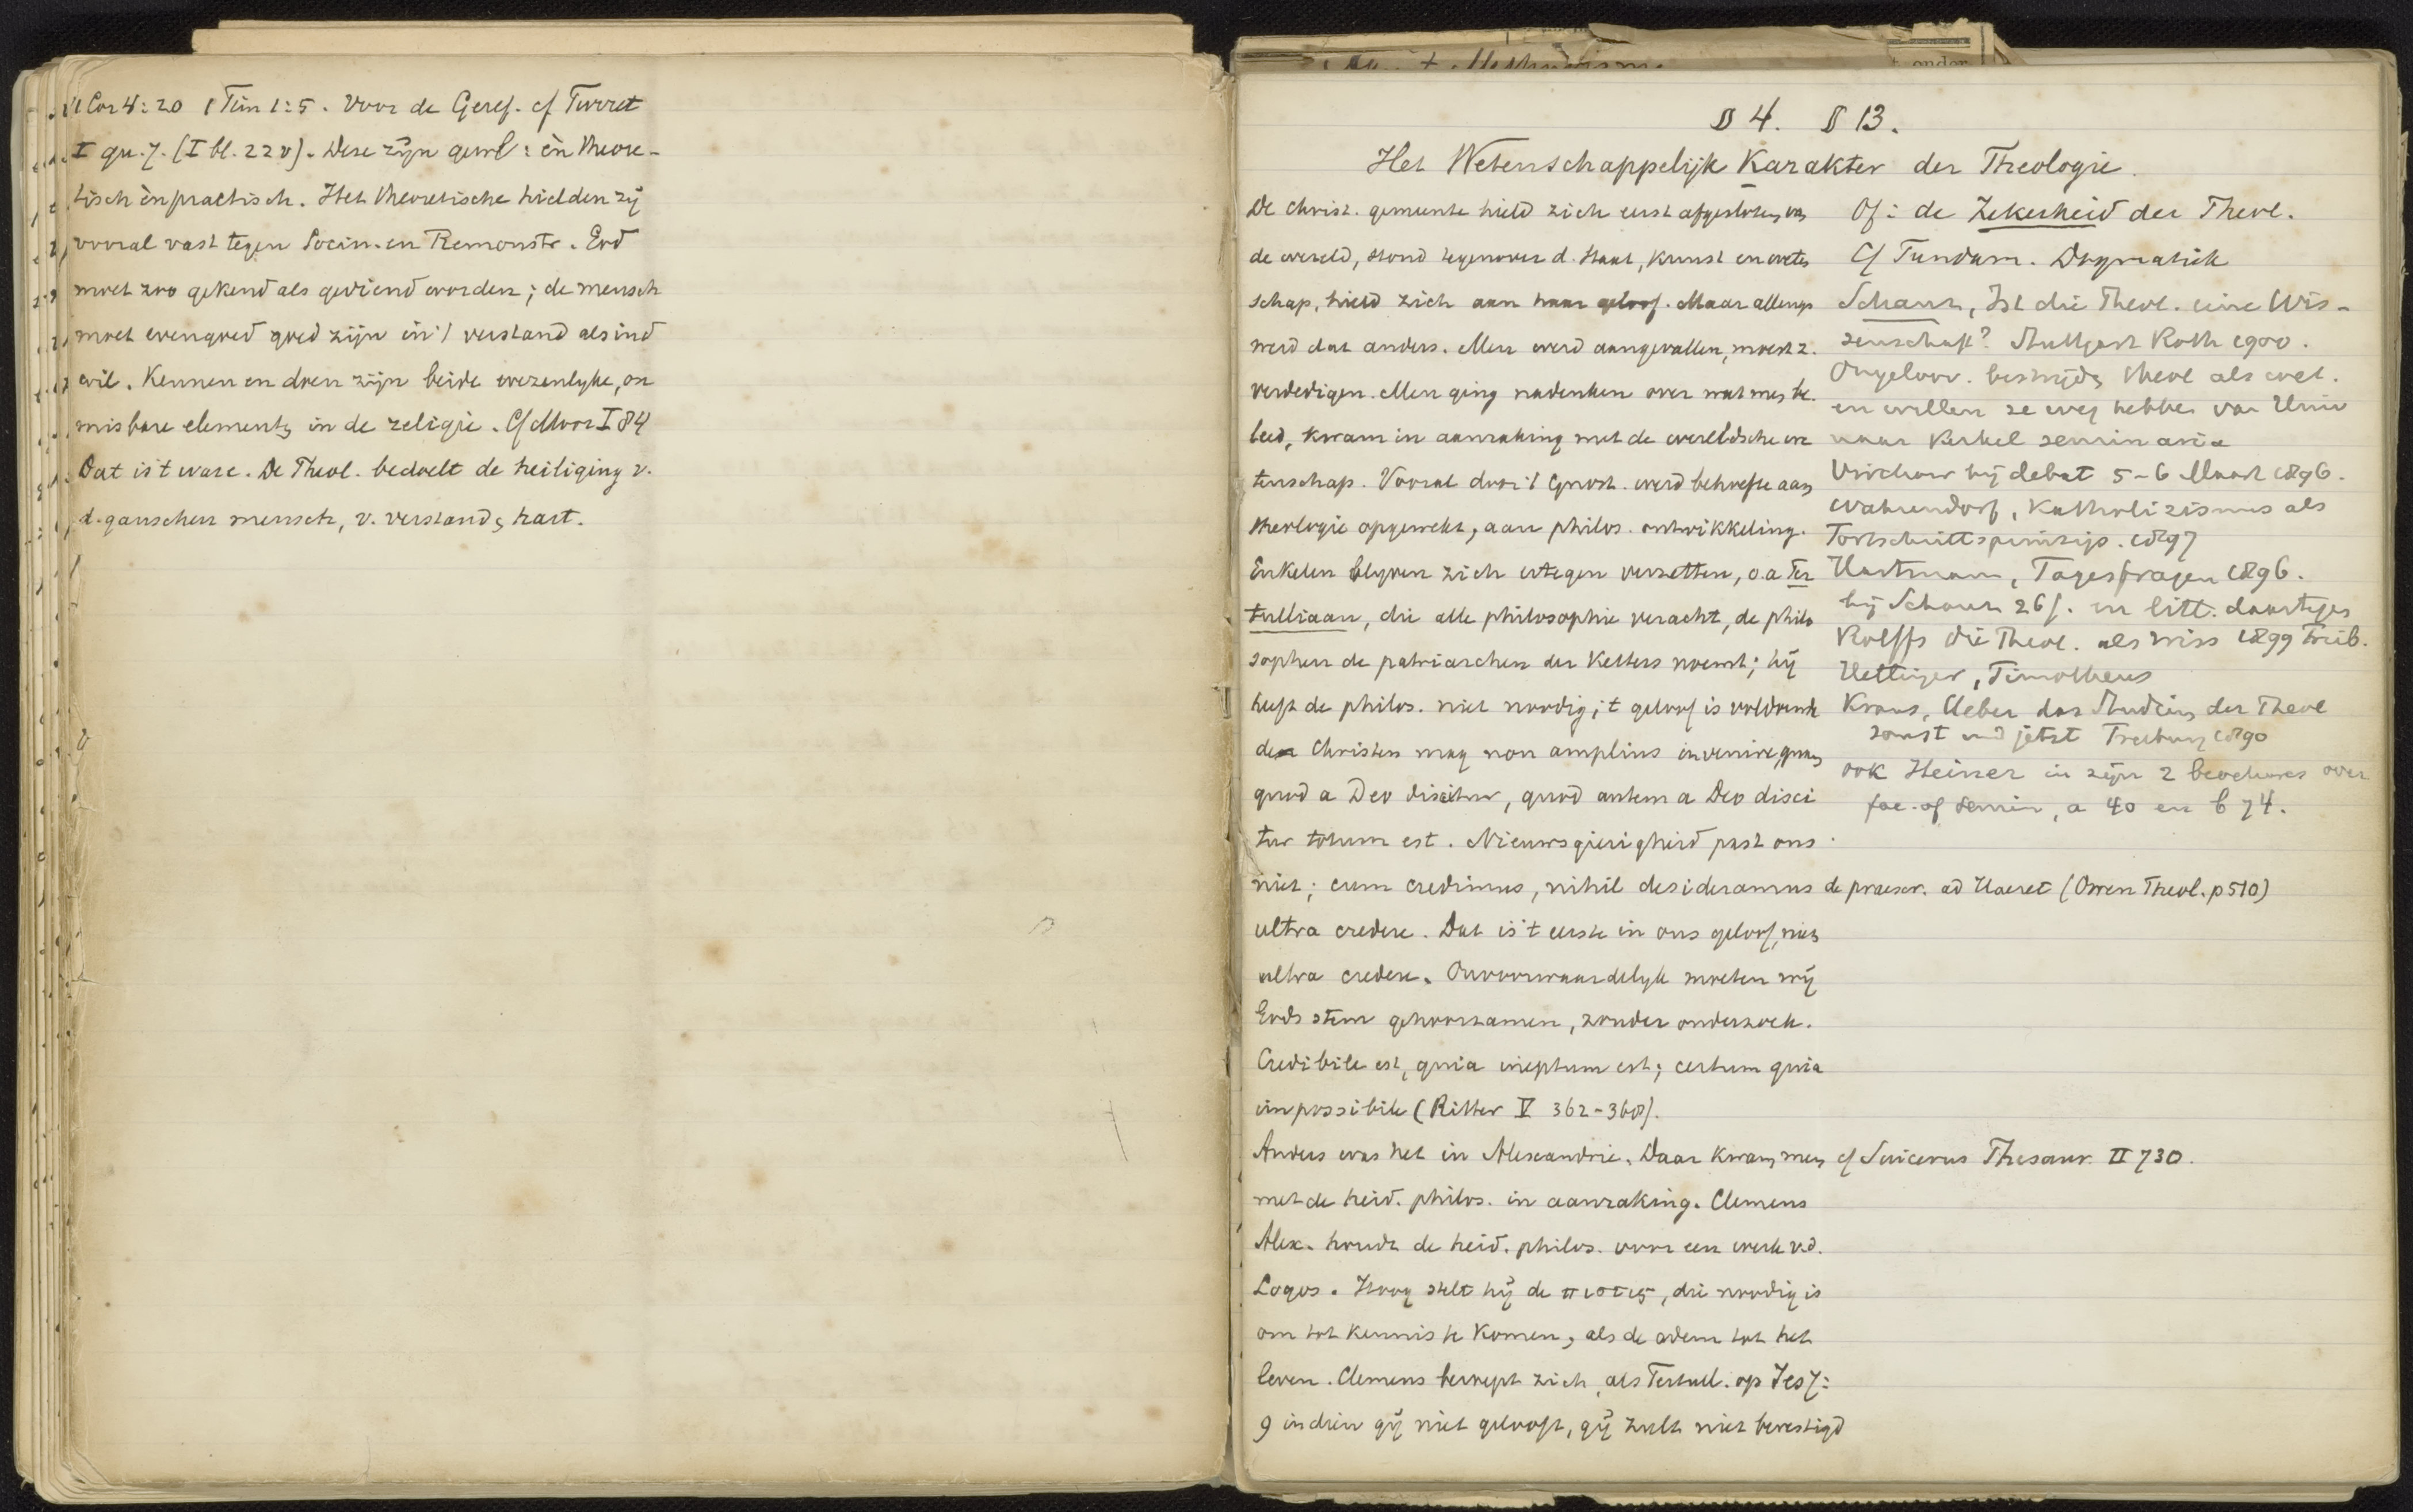 1 Cor 4:20 1 Tim 1:5. Voor de Geref. cf Turret
I qu. 7. (I bl. 22 v). Deze zijn : èn theore-
tisch èn practisch. Het theoretische hielden zij
vooral vast tegen Socin. en Remonstr. God
moet zoo gekend als gediend worden; de mensch
moet evengoed goed zijn in 't verstand als in d
wil. Kennen en doen zijn beide wezenlyke, on
misbare elementen in de religie. Cf Moor I 84
Dat is 't ware. De Theol. bedoelt de heiliging v.
d. ganschen mensch, v. verstand en hart.
§ 4. § 13.
Het Wetenschappelijk Karakter der Theologie.
De Christ. gemeente hield zich eerst afgesloten van
de wereld, stond tegenover d. Staat, Kunst en weten
schap, hield zich aan haar geloof. Maar allengs
werd dat anders. Men werd aangevallen, moest z.
verdedigen. Men ging nadenken over wat men be
leed, kwam in aanraking met de wereldsche we
tenschap. Vooral door 't Gnost. werd behoefte aan
theologie opgewekt, aan philos. ontwikkeling.
Enkelen blyven zich ertegen verzetten, o.a Ter
tulliaan, die alle philosophie veracht, de philo
sophen de patriarchen der Ketters noemt; hij
heeft de philos. niet noodig; 't geloof is voldoende
de Christen mag non amplius invenire quam
quod a Deo discitur, quod autem a Deo disci
tur totum est. Nieuwsgierigheid past ons
niet; cum credimus, nihil desideramus
ultra credere. Dat is 't eerste in ons geloof, niets
ultra credere. Onvoorwaardelyk moeten wij
Gods stem gehoorzamen, zonder onderzoek.
Credibile est, quia ineptum est; certum quia
impossibile (Ritter V 362-368).
Anders was het in Alexandrie. Daar kwam men
met de heid. philos. in aanraking. Clemens
Alex. houdt de heid. philos. voor een werk v.d.
Logos. Hoog stelt hij de πιστις, die noodig is
om tot kennis te komen, als de adem tot het
leven. Clemens beroept zich, als Tertull. op Jes 7:
9 indien gij niet gelooft, gij zult niet bevestigd
Of: de Zekerheid der Theol.
Cf Fundam. Dogmatiek
Schanz, Ist die Theol. eine Wis-
senschaft? Stuttgart Roth 1900.
Ongeloov. bestrijden theol als wet.
en willen ze weg hebben van Univ
naar Kerkel seminaria
Virchow bij debat 5-6 Maart 1896.
Wahrendorf, Katholizismus als
Fortschrittsprinzip. 1897
Hartmann, Tagesfragen 1896.
bij Schanz 26f. en litt. daartegen
Rolffs die Theol. als Wiss 1899 Freib.
Hettinger, Timotheus
Kraus, Ueber das Studium der Theol
sonst und jetzt Freiburg 1890
ook Heiner in zijn 2 brochures over
fac. of semin, a 40 en b 74.
de praescr. ad Haeret (Owen Theol. p 510)
cf Suicerus Thesaur. II 730.